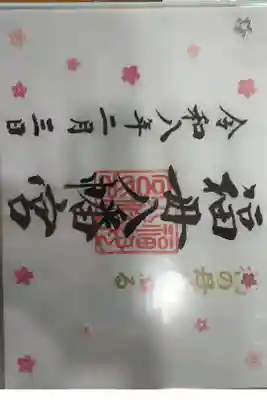 令和八年二月三日
福母八幡宮